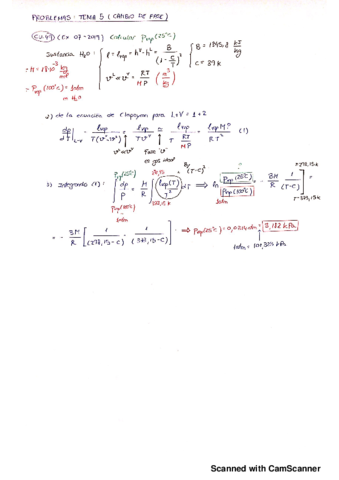 PROBLEMAS - TEMA 5 (CAMBIO DE FASE)
(Ex 07-2019) Calcular Pvap(25°C)
Sustancia H2O : { l = lvap = h^v - h^l = B / (1 - C/T)^2 { B = 1895,8 kJ/kg
C = 39 K
→ M = 18·10^-3 kg/mol
v^v ∝ v^v = RT / MP (m^3/kg)
→ Pvap(100°C) = 1atm
H2O
2) de la ecuación de Clapeyron para L+V = 1+2
dp/dT|L-V = lvap / T(v^v - v^l) = lvap / T v^v ≈ lvap / T RT/MP = lvap MP / RT^2 (1)
Fase "v"
es gas ideal
3) Integrando (1) : ∫ dp/P = M/R ∫ lvap(T)/T^2 dT ⇒ ln Pvap(25°C) / Pvap(100°C) = - BM/R 1/(T-C) ] =
B/(T-C)^2
Pvap(25°C)
Pvap(100°C)
373,15 K
1atm
1atm
= - BM/R [ 1/(298,15-C) - 1/(373,15-C) ] ⇒ Pvap(25°C) = 0,0314 atm = 3,182 kPa
1atm = 101,325 kPa
Scanned with CamScanner